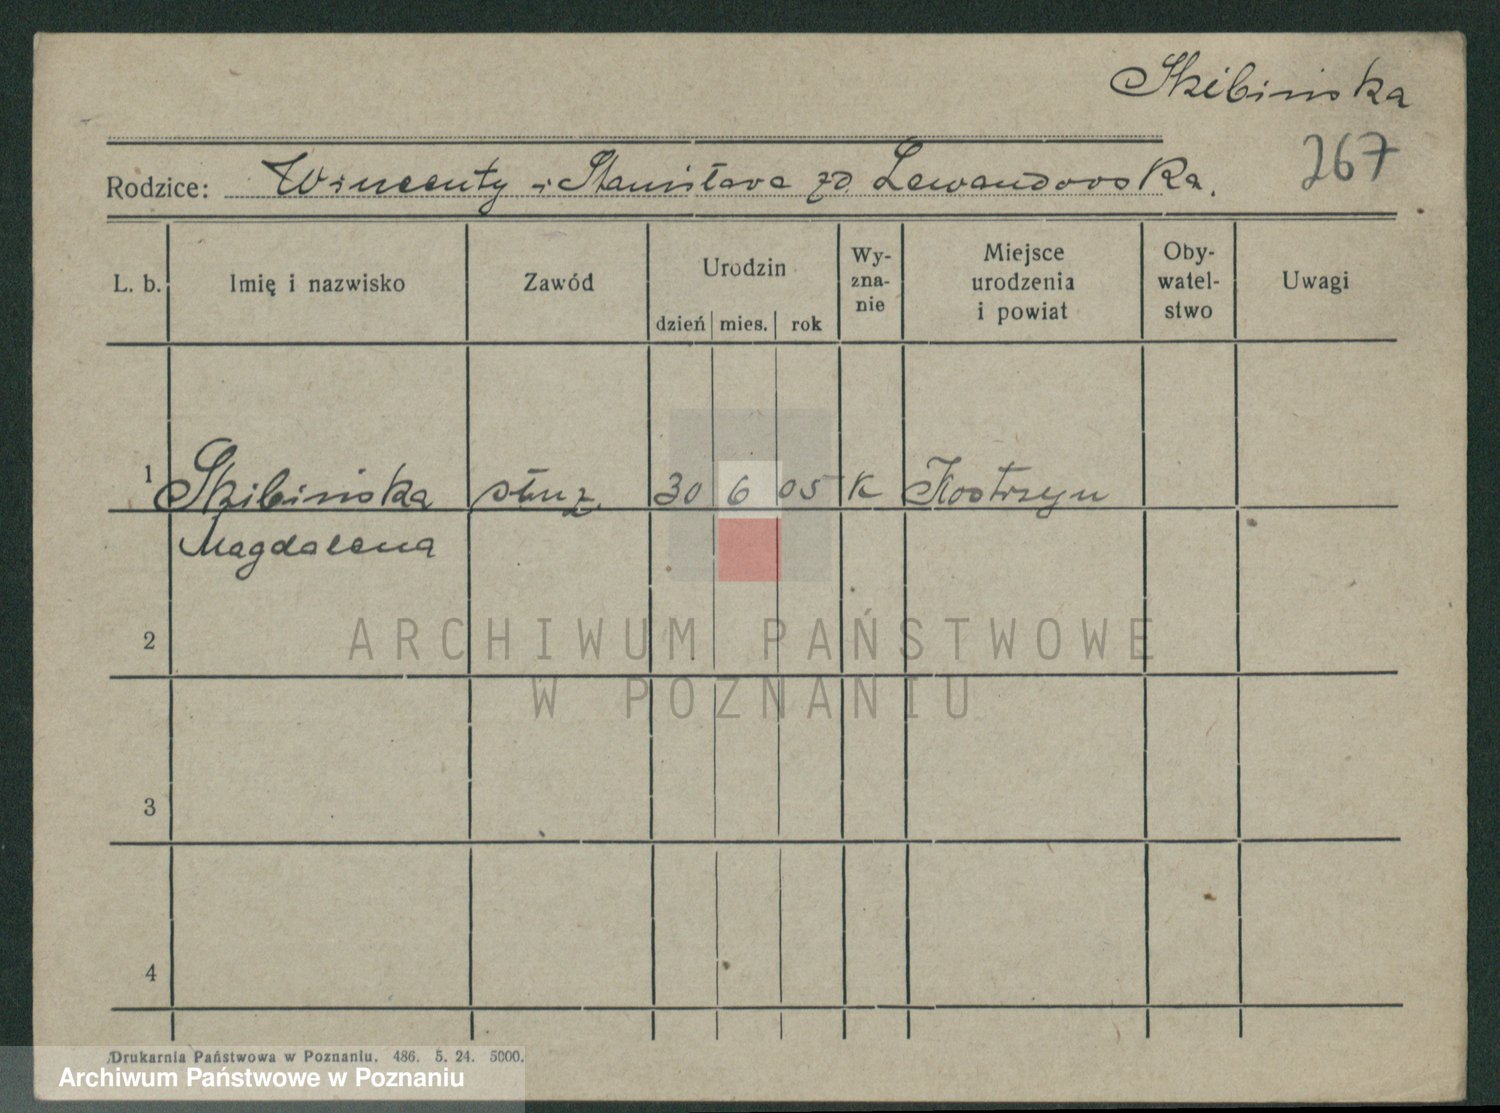 Skibińska
267
Rodzice: Wincenty i Stanisława zd. Lewandowska.
L. b. Imię i nazwisko Zawód Urodzin dzień mies. rok Wy-zna-nie Miejsce urodzenia i powiat Oby-watel-stwo Uwagi
1 Skibińska służ. 30 6 05 K Kostrzyn
Magdalena
2
ARCHIWUM PAŃSTWOWE
W POZNANIU
3
4
Drukarnia Państwowa w Poznaniu. 486. 5. 24. 5000.
Archiwum Państwowe w Poznaniu